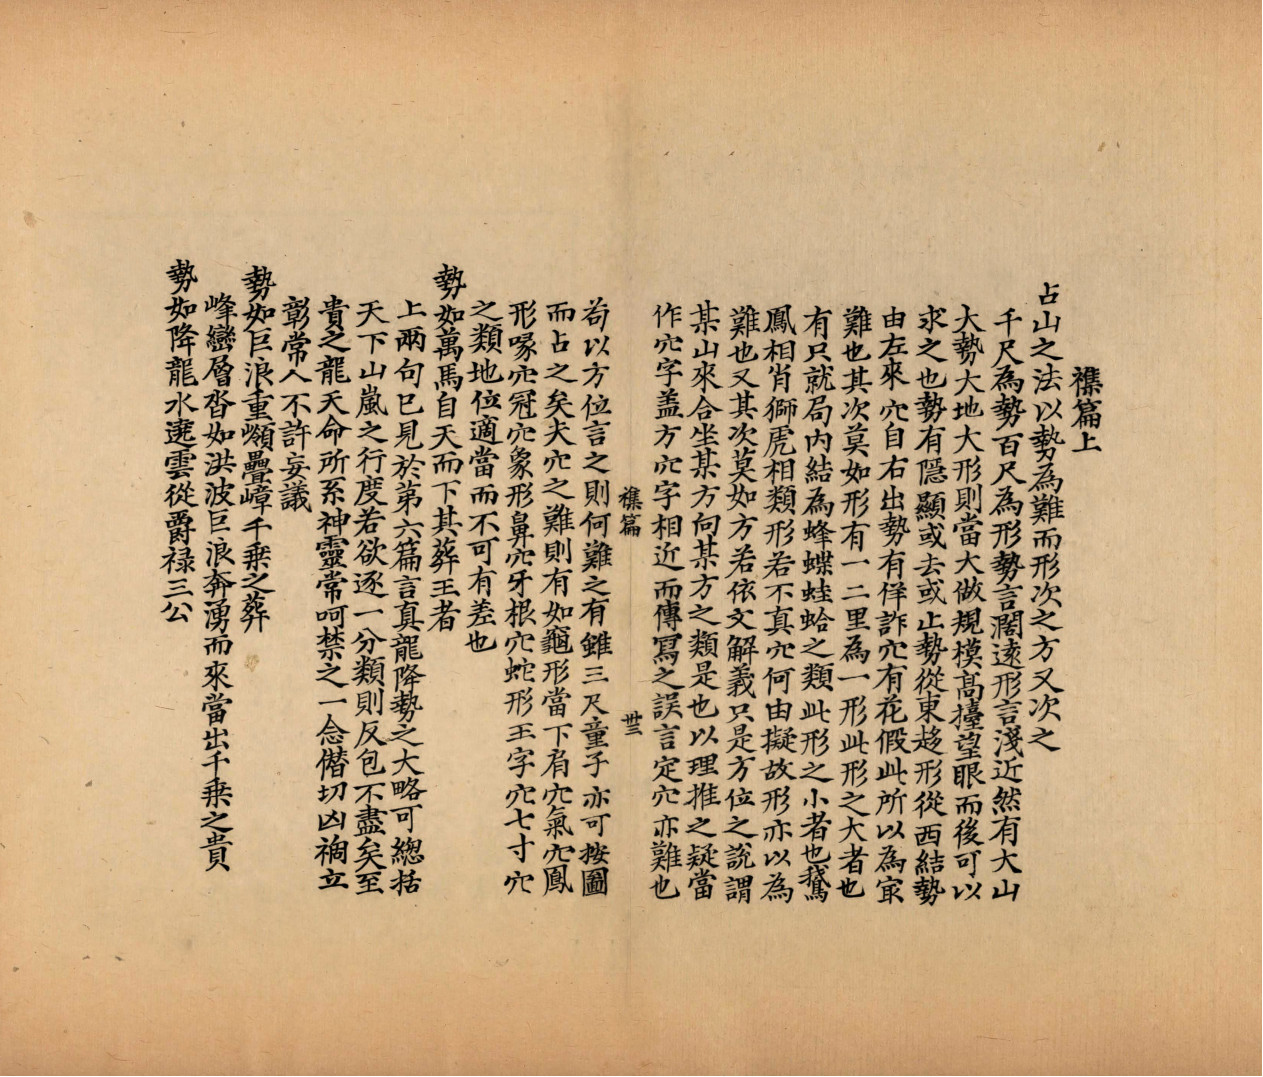 襍篇上
占山之法以勢為難而形次之方又次之
千尺為勢百尺為形勢言濶遠形言淺近然有大山
大勢大地大形則當大做規模高擡望眼而後可以
求之也勢有隱顯或去或止勢從東趍形從西結勢
由左來穴自右出勢有佯詐穴有花假此所以為㝡
難也其次莫如形有一二里為一形此形之大者也
有只就局內結為蜂蝶蛙蛤之類此形之小者也鵞
鳳相肖獅虎相類形若不真穴何由擬故形亦以為
難也又其次莫如方若依文解義只是方位之說謂
某山來合坐某方向某方之類是也以理推之疑當
作穴字盖方穴字相近而傳冩之誤言定穴亦難也
襍篇 卅三
苟以方位言之則何難之有雖三尺童子亦可按圖
而占之矣夫穴之難則有如龜形當下肩穴氣穴鳳
形喙穴冠穴象形鼻穴牙根穴蛇形王字穴七寸穴
之類地位適當而不可有差也
勢如萬馬自天而下其葬王者
上兩句已見於第六篇言真龍降勢之大略可總括
天下山嵐之行度若欲逐一分類則反包不盡矣至
貴之龍天命所系神靈常呵禁之一念僭切凶禍立
彰常人不許妄議
勢如巨浪重嶺疊嶂千乘之葬
峰巒層沓如洪波巨浪奔湧而來當出千乘之貴
勢如降龍水遶雲從爵祿三公